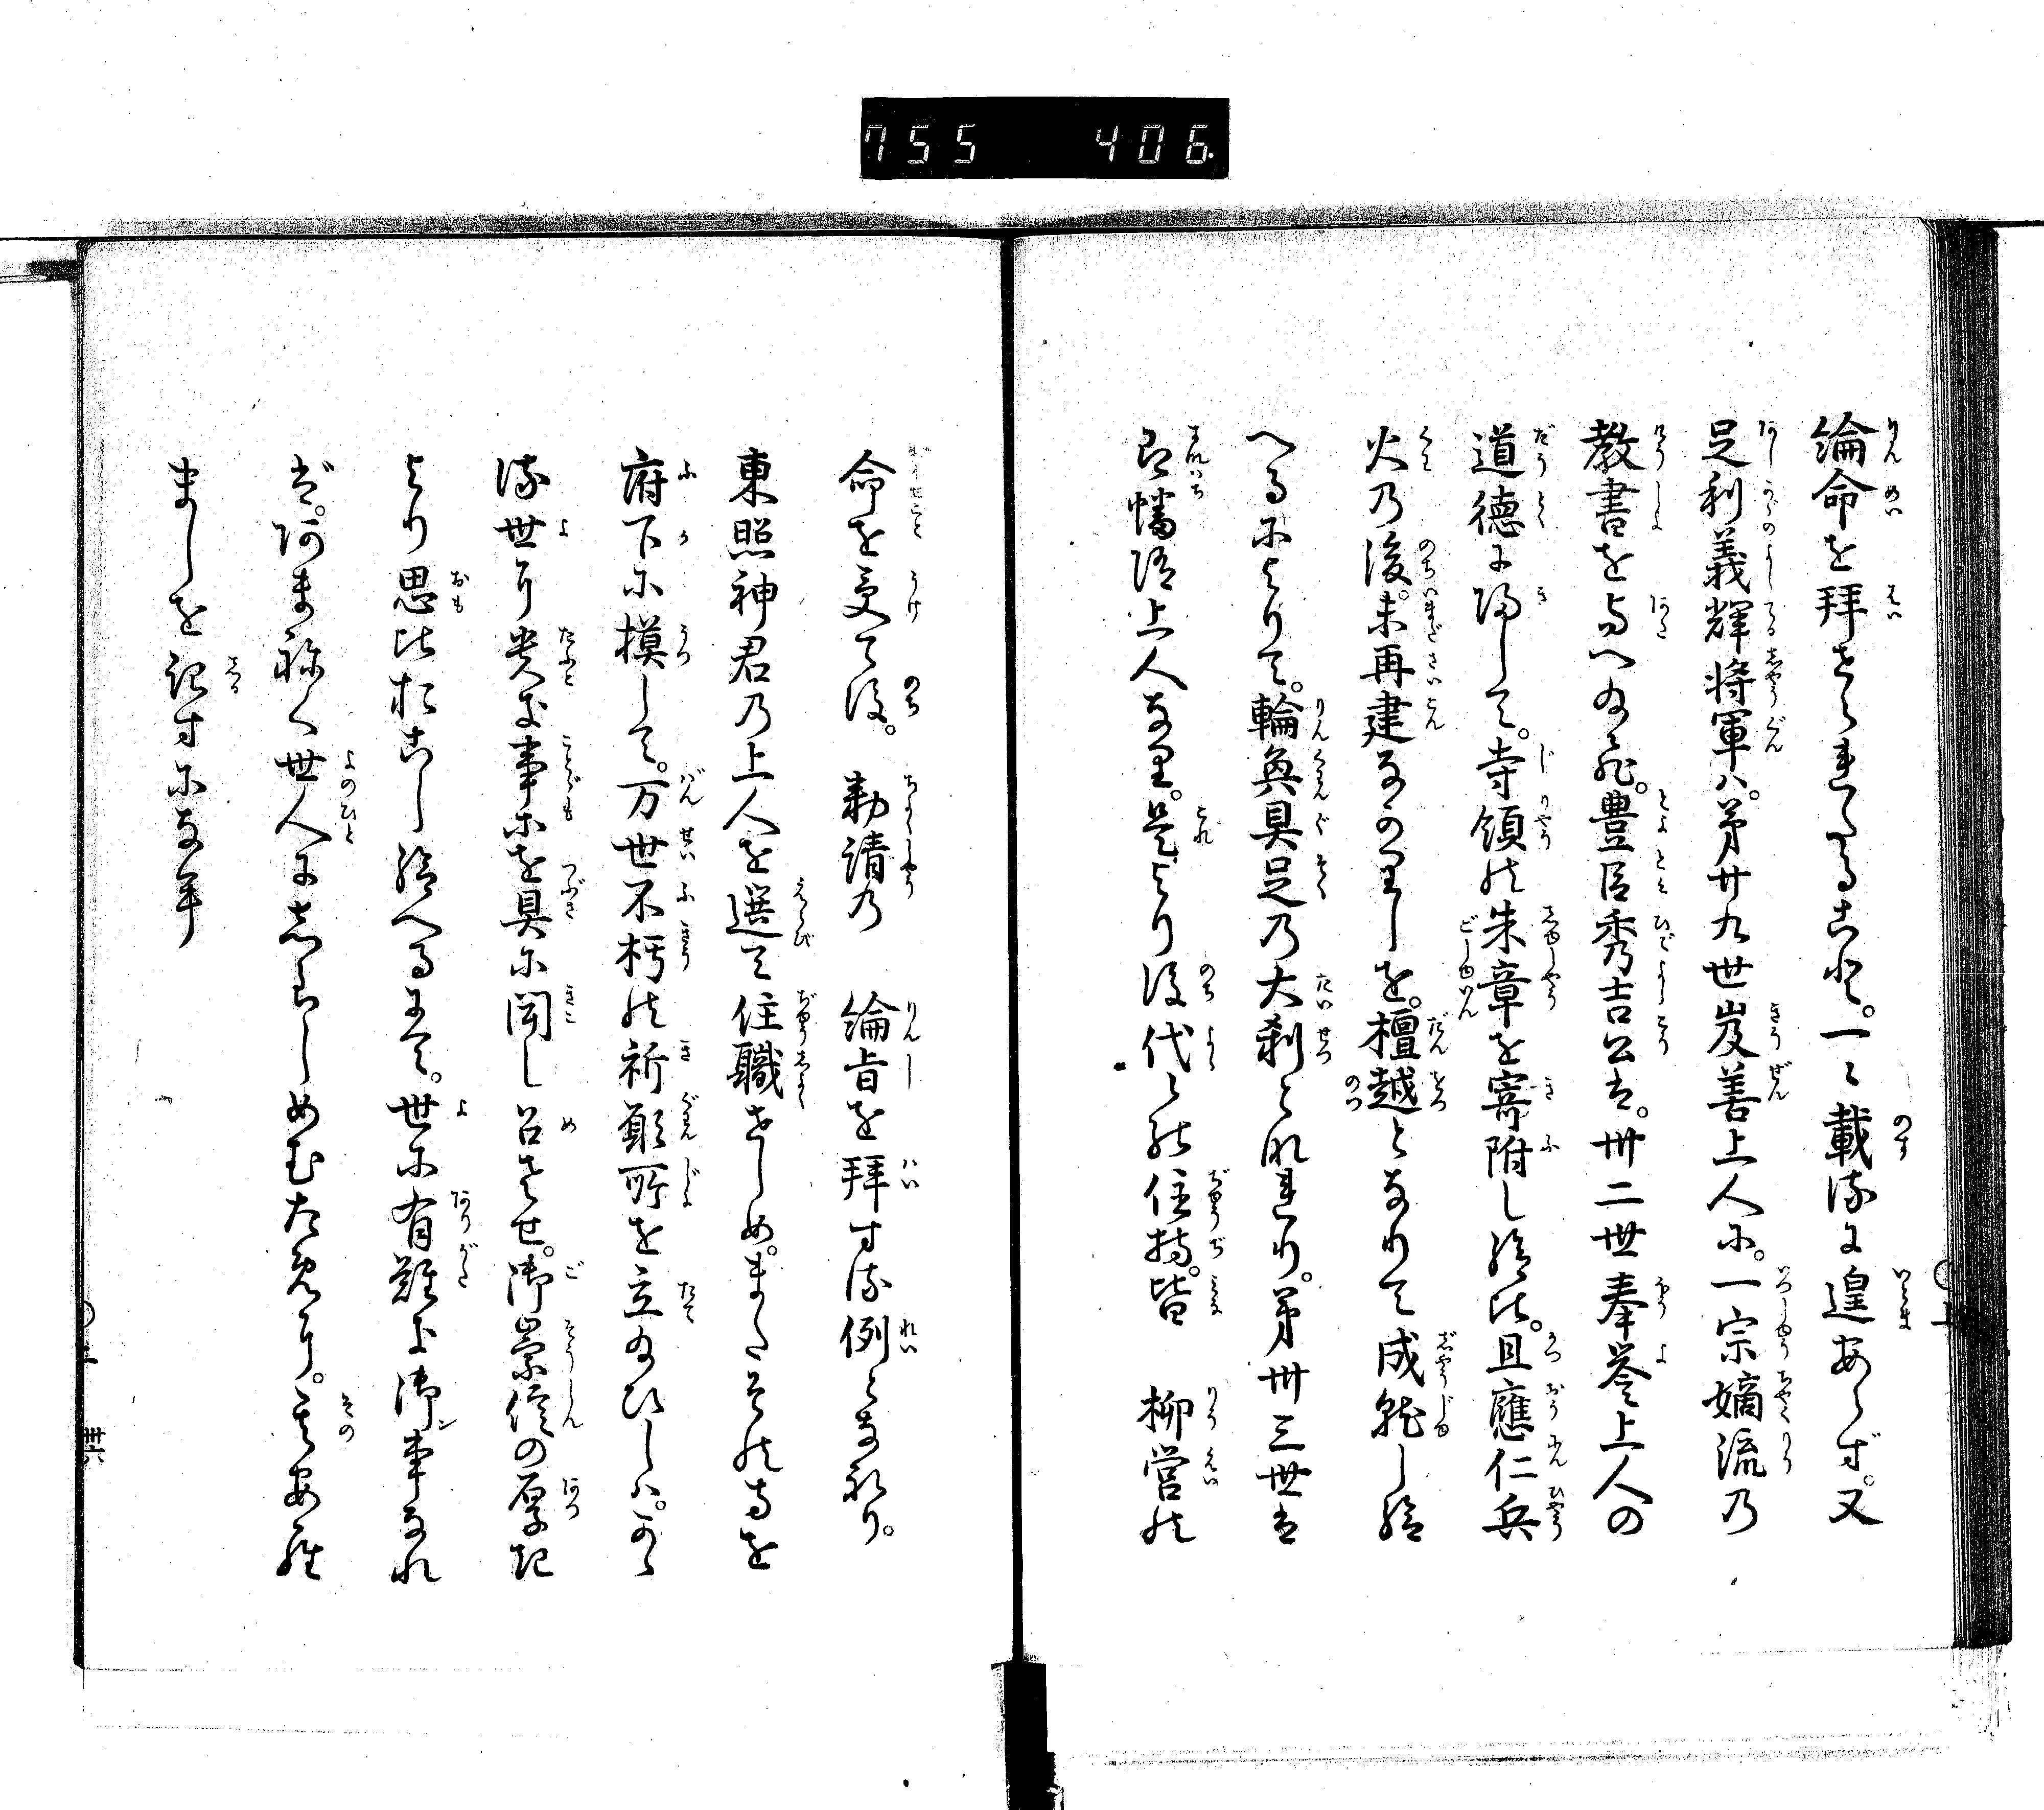 755 406.
綸命を拝せられたること。一々載るに遑あらず。又
足利義輝将軍ハ。第廿九世岌善上人に。一宗嫡流乃
教書を与へ給ひ。豊臣秀吉公は。卅二世奉誉上人の
道徳に帰して。寺領の朱章を寄附し給ひ。且應仁兵
火乃後。未再建なかりしを。檀越となりて成就し給
へるによりて。輪奐具足乃大刹となれり。第卅三世は
即幡随上人なり。是より後代々の住持。皆 柳営の
命を受て後。 勅請乃 綸旨を拝する例となれり。
東照神君乃上人を選て住職せしめ。またその寺を
府下に摸して。万世不朽の祈願所を立給ひしハ。かゝ
る世に貴き事等を具に聞し召させ。御崇信の厚き
より思ひおこし給へるにて。世に有難き御事なれ
ば。あまねく世人にしらしめむために。其あら
ましを記すになむ
卅六